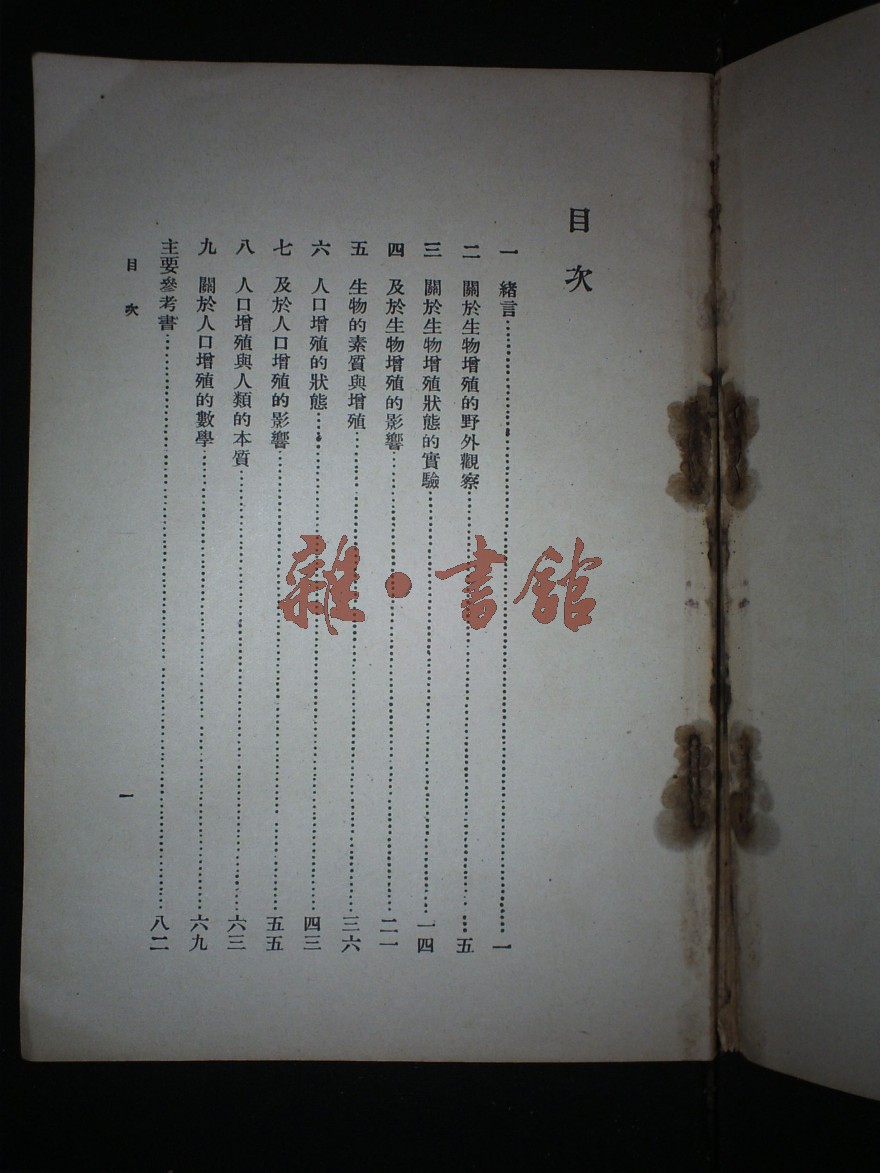 目次
一 緒言……一
二 關於生物增殖的野外觀察……五
三 關於生物增殖狀態的實驗……一四
四 及於生物增殖的影響……二一
五 生物的素質與增殖……三六
六 人口增殖的狀態……四三
七 及於人口增殖的影響……五五
八 人口增殖與人類的本質……六三
九 關於人口增殖的數學……六九
主要參考書……八二
目次 一
雜·書館